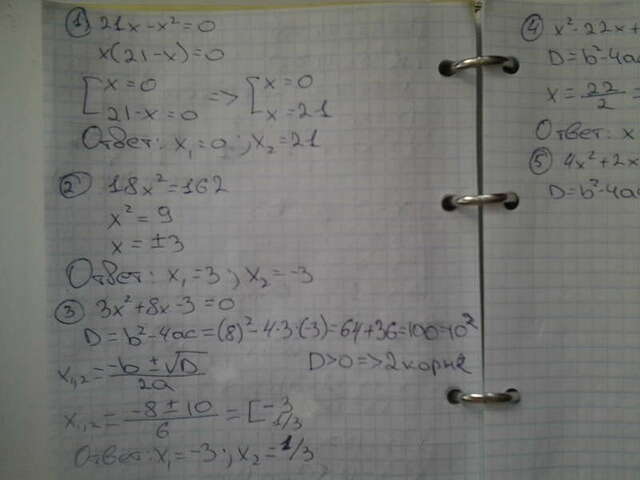 ① 21x - x² = 0
x(21-x) = 0
[ x = 0 => [ x = 0
[ 21-x = 0 [ x = 21
Ответ: x₁ = 0 ; x₂ = 21
② 18x² = 162
x² = 9
x = ±3
Ответ: x₁ = 3 ; x₂ = -3
③ 3x² + 8x - 3 = 0
D = b² - 4ac = (8)² - 4·3·(-3) = 64 + 36 = 100 = 10²
x₁,₂ = (-b ± √D)/2a D > 0 => 2 корня
x₁,₂ = (-8 ± 10)/6 = [ -3
1/3
Ответ: x₁ = -3 ; x₂ = 1/3
④ x² - 22x +
D = b² - 4ac
x = 22/2 =
Ответ: x
⑤ 4x² + 2x
D = b² - 4ac